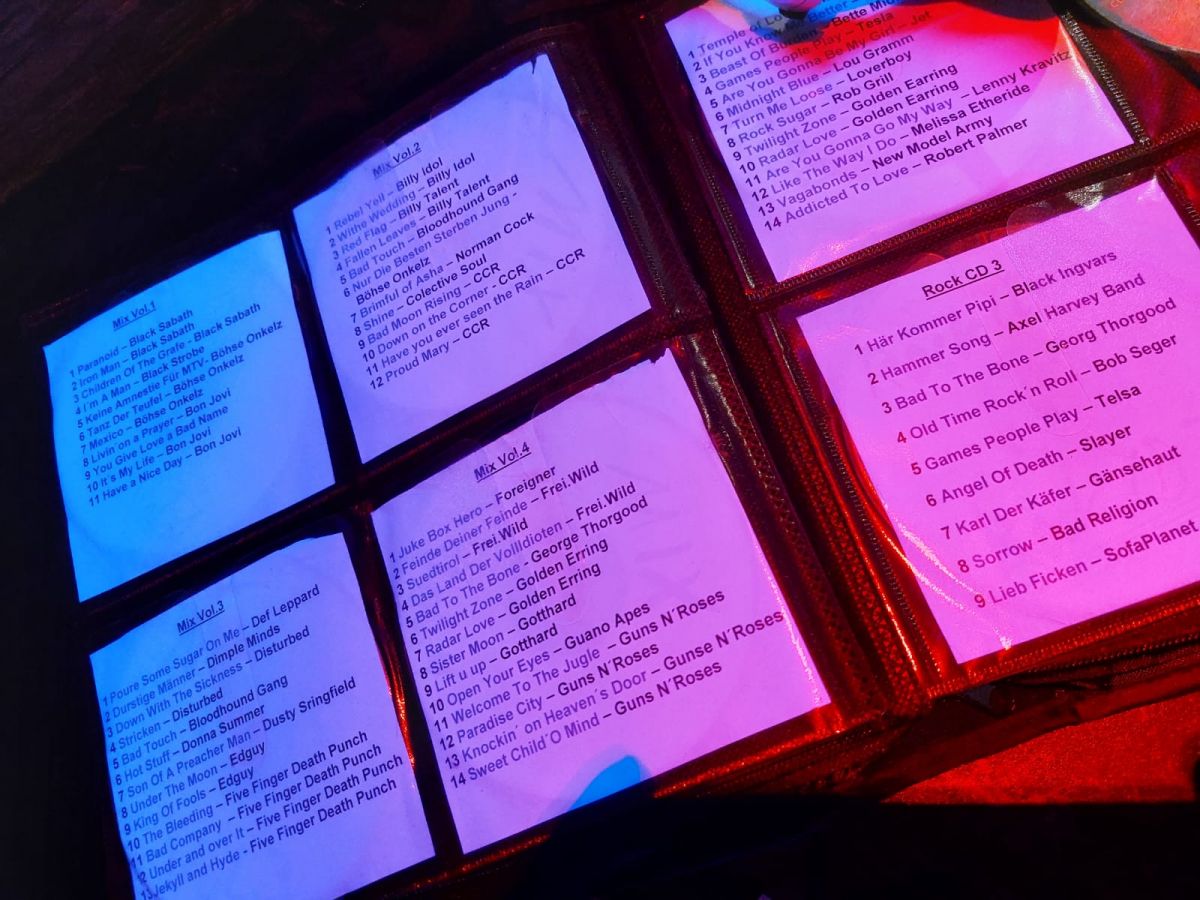 Mix Vol.1
1 Paranoid – Black Sabath
2 Iron Man – Black Sabath
3 Children Of The Grafe - Black Sabath
4 I´m A Man – Black Strobe
5 Keine Amnestie Für MTV- Böhse Onkelz
6 Tanz Der Teufel – Böhse Onkelz
7 Mexico – Böhse Onkelz
8 Livin´on a Prayer – Bon Jovi
9 You Give Love a Bad Name
10 It´s My Life – Bon Jovi
11 Have a Nice Day – Bon Jovi
Mix Vol.2
1 Rebel Yell – Billy Idol
2 Withe Wedding – Billy Idol
3 Red Flag – Billy Talent
4 Fallen Leaves – Billy Talent
5 Bad Touch – Bloodhound Gang
6 Nur Die Besten Sterben Jung -
Böhse Onkelz
7 Brimful of Asha – Norman Cock
8 Shine – Colective Soul
9 Bad Moon Rising – CCR
10 Down on the Corner - CCR
11 Have you ever seen the Rain – CCR
12 Proud Mary – CCR
Mix Vol.3
1 Poure Some Sugar On Me – Def Leppard
2 Durstige Männer – Dimple Minds
3 Down With The Sickness – Disturbed
4 Stricken – Disturbed
5 Bad Touch – Bloodhound Gang
6 Hot Stuff – Donna Summer
7 Son Of A Preacher Man – Dusty Sringfield
8 Under The Moon – Edguy
9 King Of Fools – Edguy
10 The Bleeding – Five Finger Death Punch
11 Bad Company – Five Finger Death Punch
12 Under and over It – Five Finger Death Punch
13 Jekyll and Hyde - Five Finger Death Punch
Mix Vol.4
1 Juke Box Hero – Foreigner
2 Feinde Deiner Feinde – Frei.Wild
3 Suedtirol – Frei.Wild
4 Das Land Der Vollldioten – Frei.Wild
5 Bad To The Bone - George Thorgood
6 Twilight Zone – Golden Erring
7 Radar Love – Golden Erring
8 Sister Moon – Gotthard
9 Lift u up – Gotthard
10 Open Your Eyes – Guano Apes
11 Welcome To The Jugle – Guns N´Roses
12 Paradise City – Guns N´Roses
13 Knockin´ on Heaven´s Door – Gunse N´Roses
14 Sweet Child´O Mind – Guns N´Roses
1 Temple of
2 If You Better – Bette
3 Beast Of Burden – Bette
4 Games People Play – Tesla
5 Are You Gonna Be My Girl – Jet
6 Midnight Blue – Lou Gramm
7 Turn Me Loose – Loverboy
8 Rock Sugar – Rob Grill
9 Twilight Zone – Golden Earring
10 Radar Love – Golden Earring
11 Are You Gonna Go My Way – Lenny Kravitz
12 Like The Way I Do – Melissa Etheride
13 Vagabonds – New Model Army
14 Addicted To Love – Robert Palmer
Rock CD 3
1 Här Kommer Pipi – Black Ingvars
2 Hammer Song – Axel Harvey Band
3 Bad To The Bone – Georg Thorgood
4 Old Time Rock´n Roll – Bob Seger
5 Games People Play – Telsa
6 Angel Of Death – Slayer
7 Karl Der Käfer – Gänsehaut
8 Sorrow – Bad Religion
9 Lieb Ficken – SofaPlanet